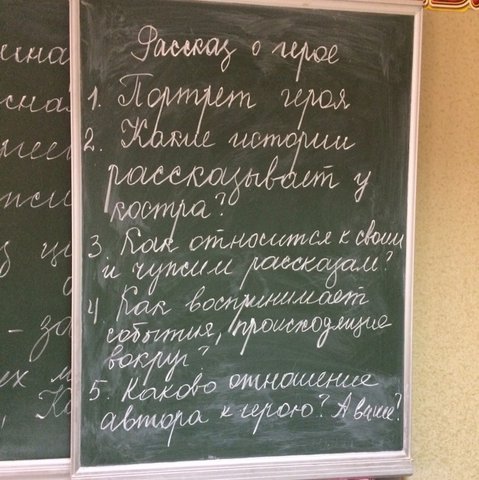 Рассказ о герое.
1. Портрет героя
2. Какие истории
рассказывает у
костра?
3. Как относится к своим
и чужим рассказам?
4 Как воспринимает
события, происходящие
вокруг?
5. Каково отношение
автора к герою? А ваше?